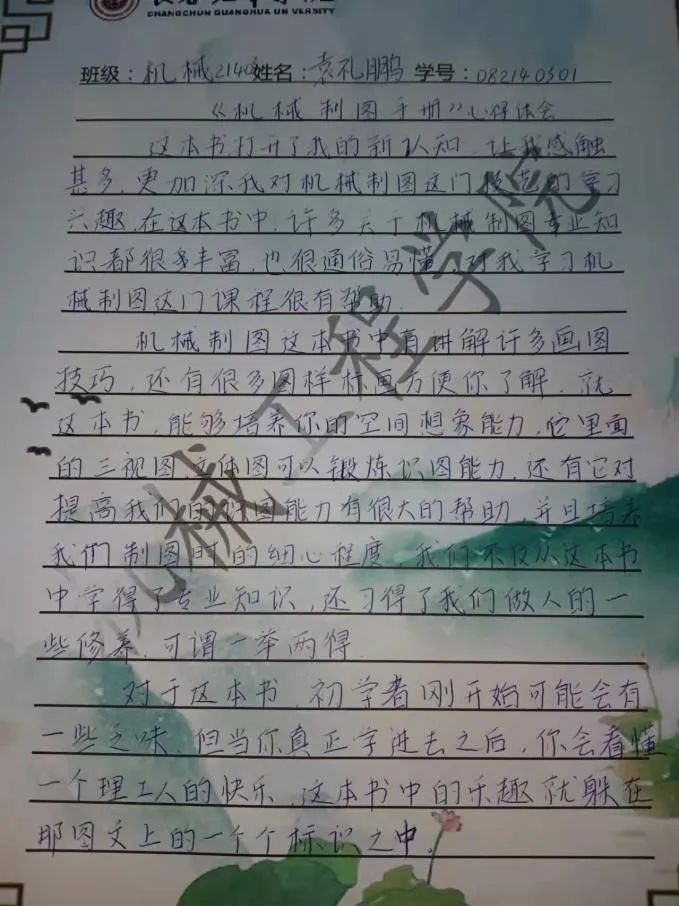 CHANGCHUN GUANGHUA UNIVERSITY
班级：机械21403 姓名：袁礼鹏 学号：082140301
《机械制图手册》心得体会
这本书打开了我的新认知，让我感触
甚多，更加深我对机械制图这门技范的学习
兴趣，在这本书中，许多关于机械制图专业知
识都很多丰富，也很通俗易懂，对我学习机
械制图这门课程很有帮助.
机械制图这本书中有讲解许多画图
技巧，还有很多图样标画方便你了解．就
这本书，能够培养你的空间想象能力，它里面
的三视图，立体图可以锻炼识图能力，还有它对
提高我们的识图能力有很大的帮助，并且培养
我们制图时的细心程度，我们不仅从这本书
中学得了专业知识，还习得了我们做人的一
些修养，可谓一举两得.
对于这本书，初学者刚开始可能会有
一些乏味，但当你真正学进去之后，你会看懂
一个理工人的快乐，这本书中的乐趣就躲在
那图文上的一个个标识之中。
机械工程学院